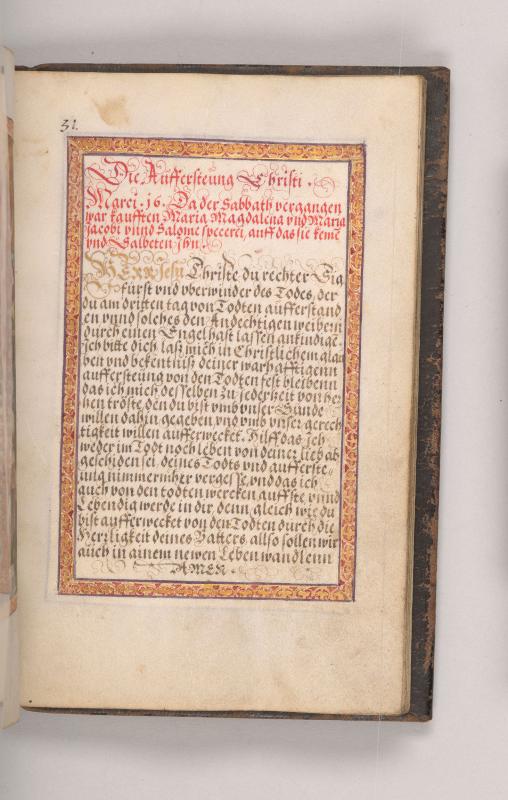 31.
Die Auffersteung Christi.
Marci. 16. Da der Sabbath vergangen
war kaufften Maria Magdalena vnd Maria
Jacobi vnnd Salome specerei, auff das sie keme
vnd Salbeten Ihn.
HErr Jesu Christe du rechter Sig
fürst vnd vberwinder des Todes, der
du am dritten tag von Todten aufferstand
en vnnd solches den Andechtigen weibern
durch einen Engel hast lassen ankündige.
Ich bitte dich laß mich in Christlichem glau
ben vnd bekentnuß deiner warhafftigenn
auffersteung von den Todten fest bleibenn
das ich mich desselben zu jederzeit von her
tzen tröste, den du bist vmb vnser Sünde
willen dahin gegeben, vnd vmb vnser gerech
tigkeit willen aufferwecket. Hilff das Ich
weder im Todt noch leben von deiner lieb ab
gescheiden sei, deines Todts vnd auffersteˍ
ung nimmermher vergesse, vnd das ich
auch von den todten wercken auffste vnnd
Lebendig werde in dir, denn gleich wie du
bist aufferwecket von den Todten durch die
Herrligkeit deines Vatters, allso sollen wir
auch in ainem newen Leben wandlenn
AMEN.